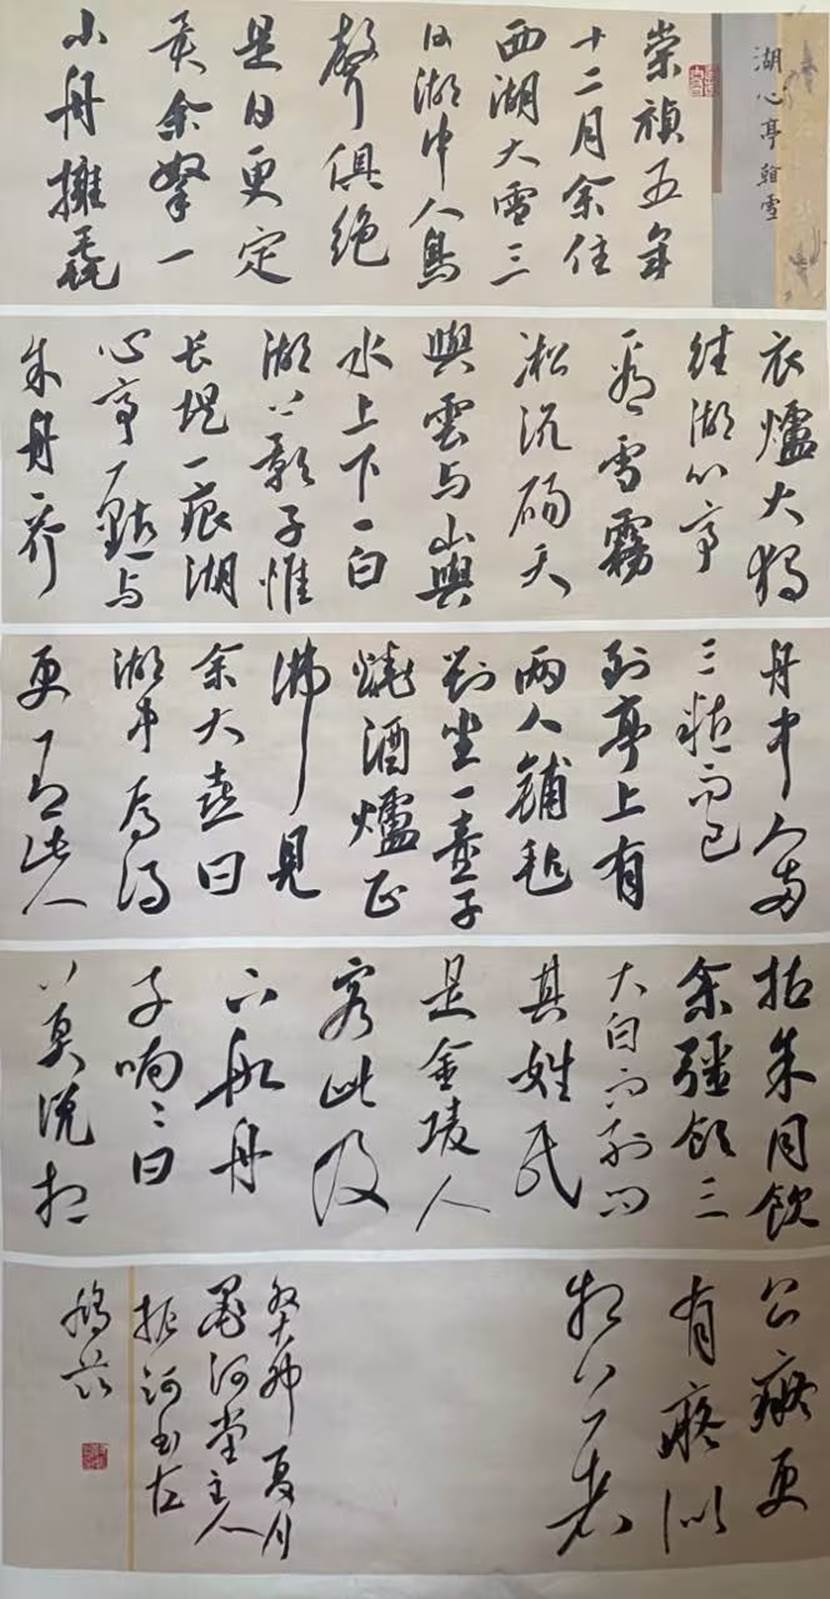 湖心亭翰雪
崇禎五年
十二月余住
西湖大雪三
日湖中人鳥
聲俱絕
是日更定
矣余拏一
小舟擁毳
衣爐火獨
往湖心亭
看雪霧
凇沆碭天
與雲与山與
水上下一白
湖上影子惟
長堤一痕湖
心亭一點与
余舟一芥
舟中人兩
三粒而已
到亭上有
兩人鋪毡
對坐一童子
燒酒爐正
沸見
余大喜曰
湖中焉得
更有此人
拉余同飲
余強飲三
大白而別問
其姓氏
是金陵人
客此及
下船舟
子喃〻曰
莫說相
公癡更
有癡似
相公者
癸卯夏月
墨河堂主人
振河書在
鳩茲